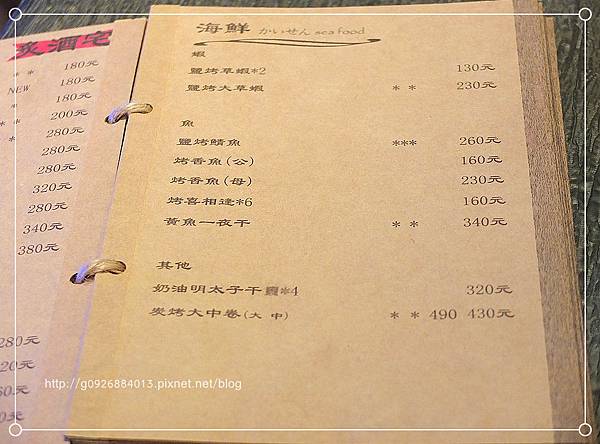 炙酒宅
* * 180元
NEW 180元
* 180元
* * 200元
* 280元
280元
280元
320元
280元
340元
380元
280元
20元
60元
0元
海鮮 かいせん sea food
蝦
鹽烤草蝦*2 130元
鹽烤大草蝦 * * 230元
魚
鹽烤鯖魚 *** 260元
烤香魚(公) 160元
烤香魚(母) 230元
烤喜相逢*6 160元
黃魚一夜干 * * 340元
其他
奶油明太子干貝*4 320元
炭烤大中卷(大 中) * * 490 430元
http://g0926884013.pixnet.net/blog